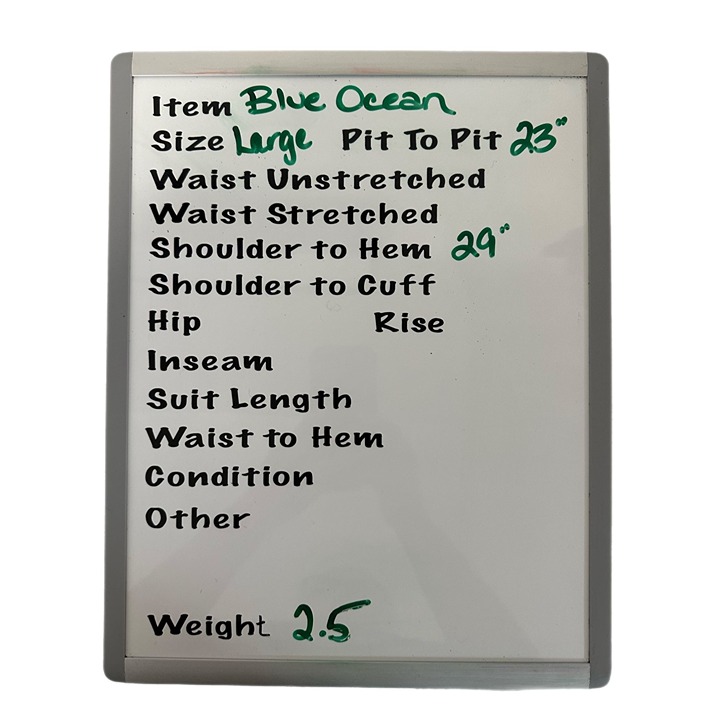 Item Blue Ocean
Size Large Pit To Pit 23"
Waist Unstretched
Waist Stretched
Shoulder to Hem 29"
Shoulder to Cuff
Hip Rise
Inseam
Suit Length
Waist to Hem
Condition
Other
Weight 2.5